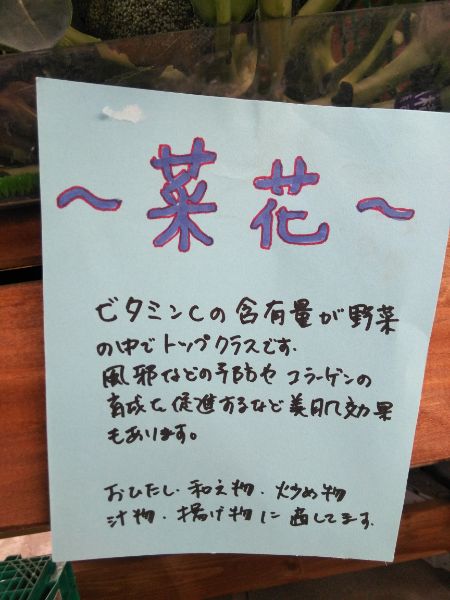 ～菜花～
ビタミンCの含有量が野菜
の中でトップクラスです.
風邪などの予防や コラーゲンの
育成を促進するなど美肌効果
もあります。
おひたし・和え物・炒め物
汁物・揚げ物に適してます.